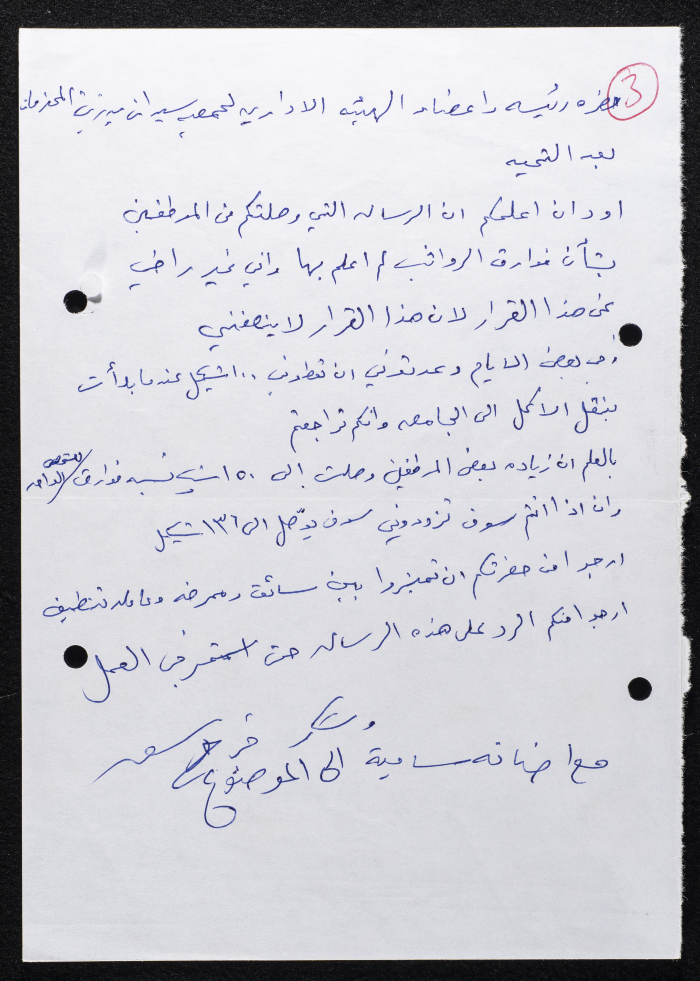 3
حضره رئيسه واعضاء الهيئه الاداريه لجمعيه سيدات بيرزيت المحترمات
بعد التحيه
اود ان اعلمكم ان الرساله التي وصلتكم من الموظفين
بشأن فوارق الرواتب لم اعلم بها واني غير راضي
عن هذا القرار لان هذا القرار لا ينصفني
بعض الايام وعدتوني ان تعطوني ١٠٠ شيكل عندما بدأت
بنقل الاكل الى الجامعه وانكم تراجعتم
بالعلم ان زياده بعض الموظفين وصلت الى ١٥٠ شيكل نسبه فوارق
وان اذا انتم سوف تزودوني سوف يوصل الى ١٣٦ شيكل
ارجو من حضرتكم ان تميزوا بين سائق وممرضه وعامله تنظيف
ارجو منكم الرد على هذه الرساله حتى استمر في العمل
وشكر
مع اضافة سامية الى الموضوع